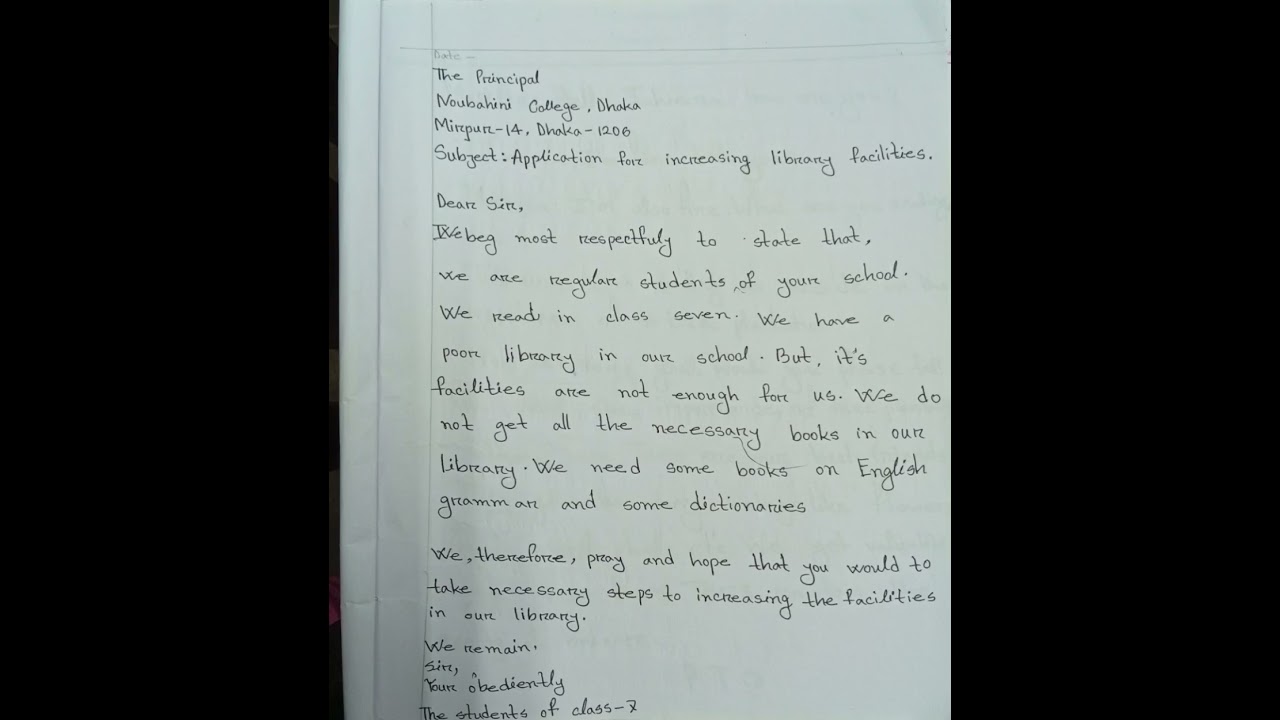 Date –
The Principal
Noubahini College, Dhaka
Mirpur-14, Dhaka-1206
Subject: Application for increasing library facilities.
Dear Sir,
We beg most respectfuly to state that,
we are regular students of your school.
We read in class seven. We have a
poor library in our school. But, it's
facilities are not enough for us. We do
not get all the necessary books in our
library. We need some books on English
grammar and some dictionaries
We, therefore, pray and hope that you would to
take necessary steps to increasing the facilities
in our library.
We remain.
Sir,
Your obediently
The students of class-7